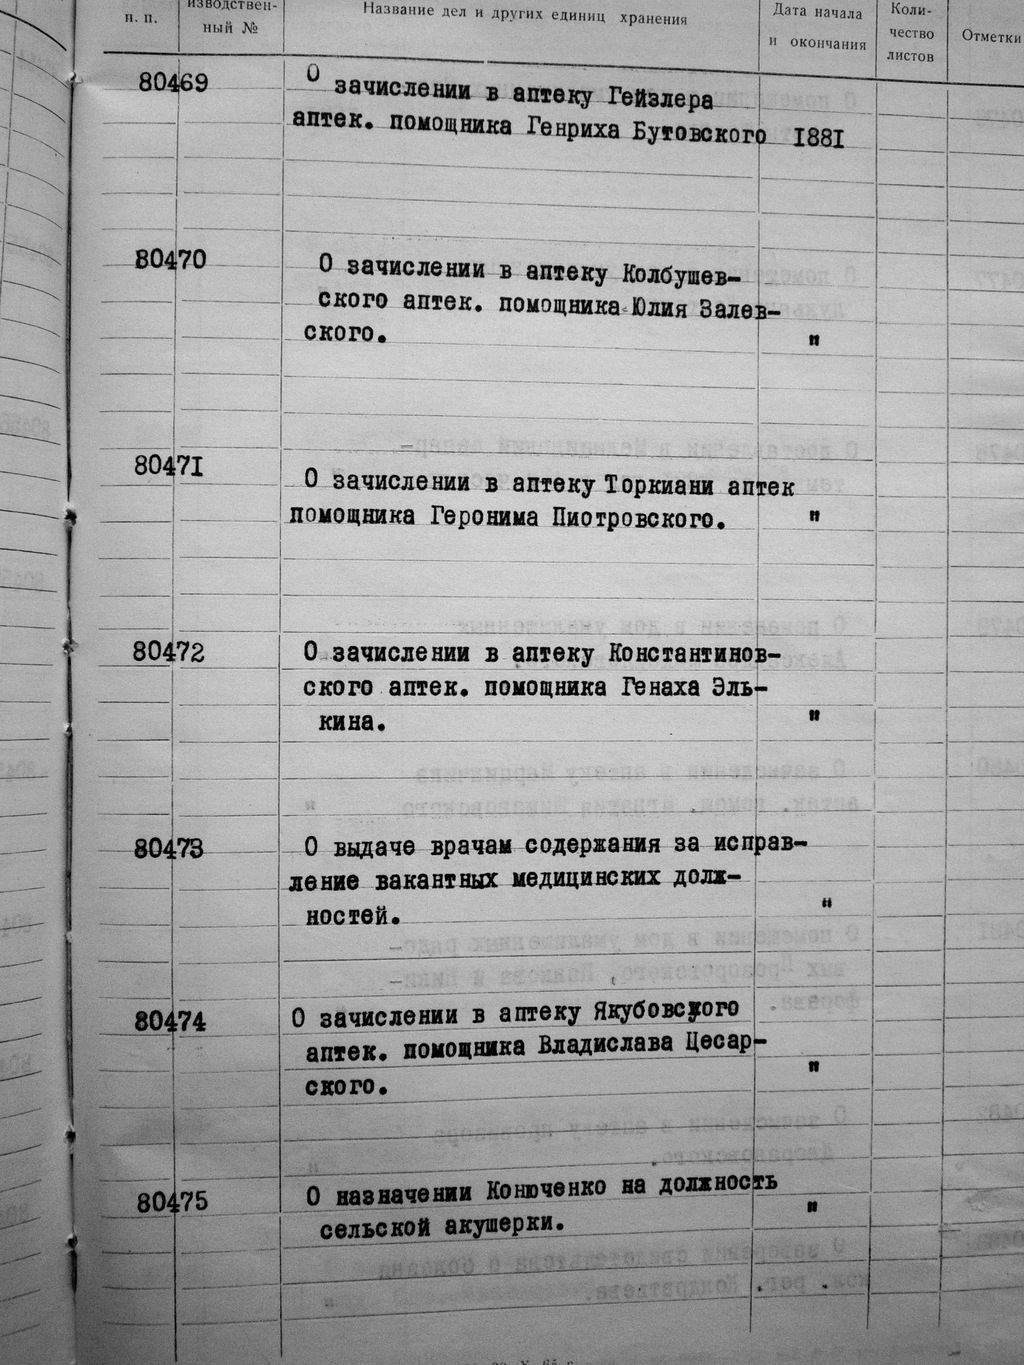 п. п.
изводствен-
ный №
Название дел и других единиц хранения
Дата начала
и окончания
Коли-
чество
листов
Отметки
80469
О зачислении в аптеку Гейзлера
аптек. помощника Генриха Бутовского 1881
80470
О зачислении в аптеку Колбушев-
ского аптек. помощника Юлия Залев-
ского. "
80471
О зачислении в аптеку Торкиани аптек
помощника Геронима Пиотровского. "
80472
О зачислении в аптеку Константинов-
ского аптек. помощника Генаха Эль-
кина. "
80473
О выдаче врачам содержания за исправ-
ление вакантных медицинских долж-
ностей. "
80474
О зачислении в аптеку Якубовского
аптек. помощника Владислава Цесар-
ского. "
80475
О назначении Конюченко на должность
сельской акушерки. "